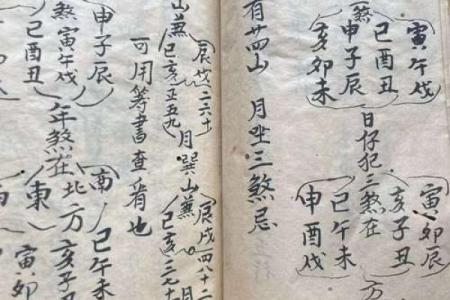 寅午戌
巳酉丑
申子辰
亥卯未
煞
日仔犯三煞在
寅卯辰
亥子丑
巳午未
申酉戌
方
有廿四山 月坐三煞忌
辰戌二六十
巳亥五九
月巽山兼
辰戌四八十二
巳亥三七十
月
山兼
可用筹書查看也
申子辰
煞寅午戌
巳酉丑
年煞在北方
南
東
亥子丑
巳午未
寅卯